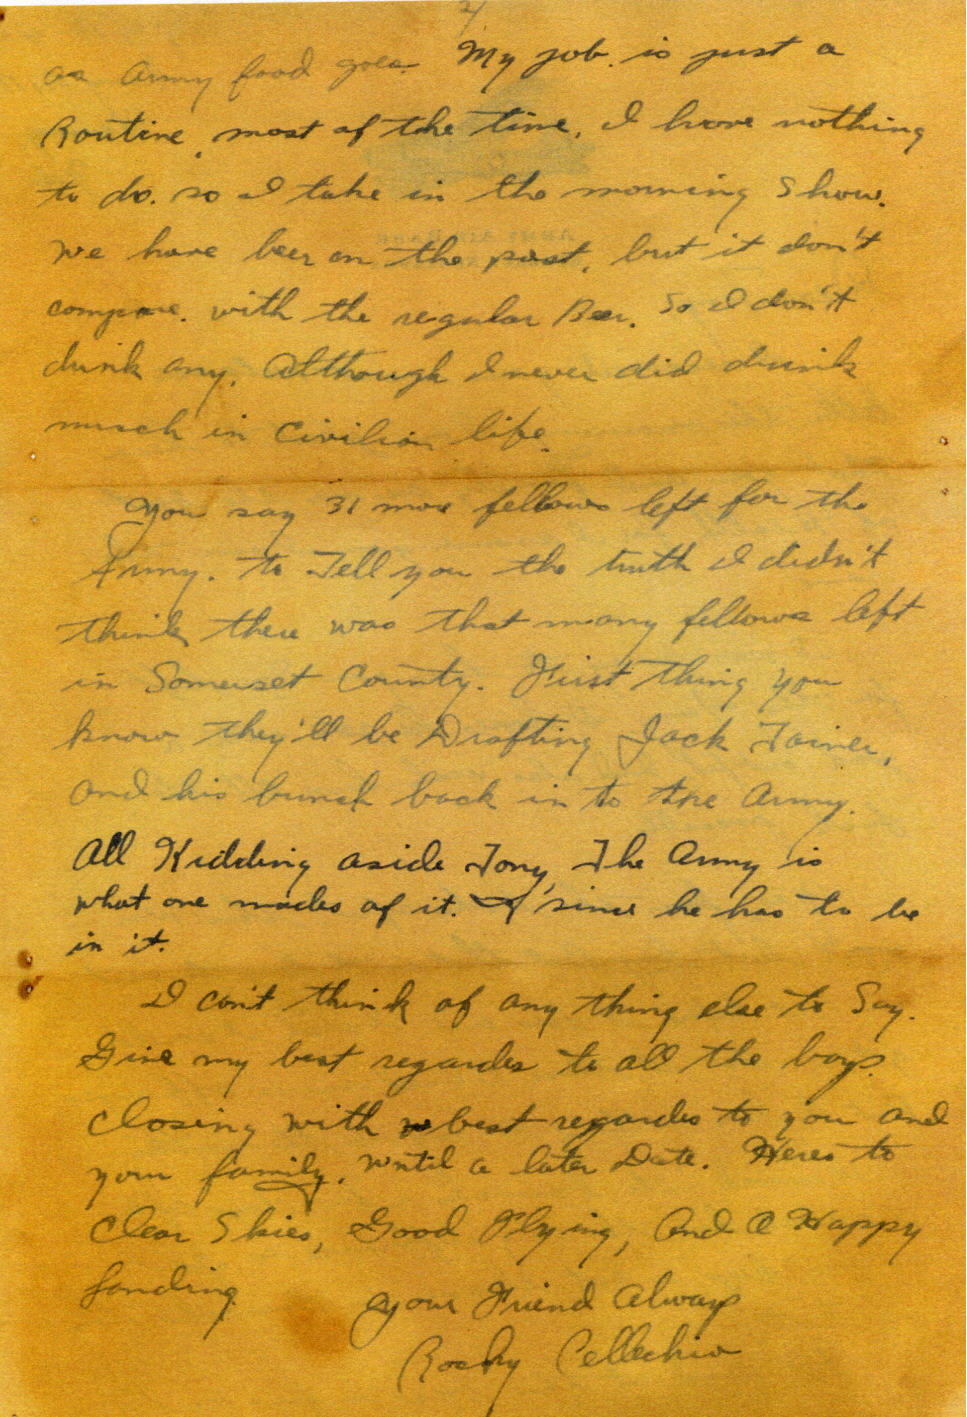 2/
as Army food goes. My job. is just a
Routine, most of the time, I have nothing
to do. so I take in the morning Show.
We have beer on the post, but it don't
compare. with the regular Beer. So I don't
drink any. Although I never did drink
much in Civilian life.
You say 31 more fellows left for the
Army. to Tell you the truth I didn't
think there was that many fellows left
in Somerset County. First thing you
know they'll be Drafting Jack
and his bunch back in to the Army.
All Kidding aside Tony, The Army is
what one mades of it. since he has to be
in it.
I can't think of any thing else to Say.
Give my best regardes to all the boys.
Closing with best regardes to you and
your family. Until a later Date. Heres to
Clear Skies, Good Flying, And A Happy
Landing.
Your Friend Always
Rocky Pellechio